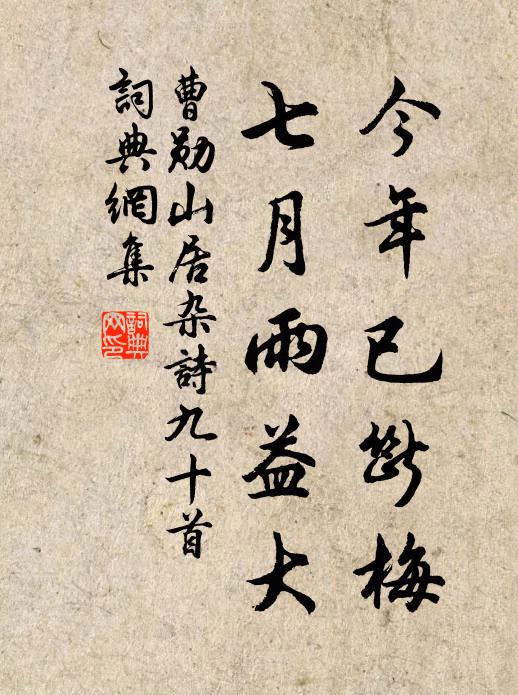 今年已斷梅
七月雨益大
曹勛山居杂詩九十首
詞典網集
詞典網印